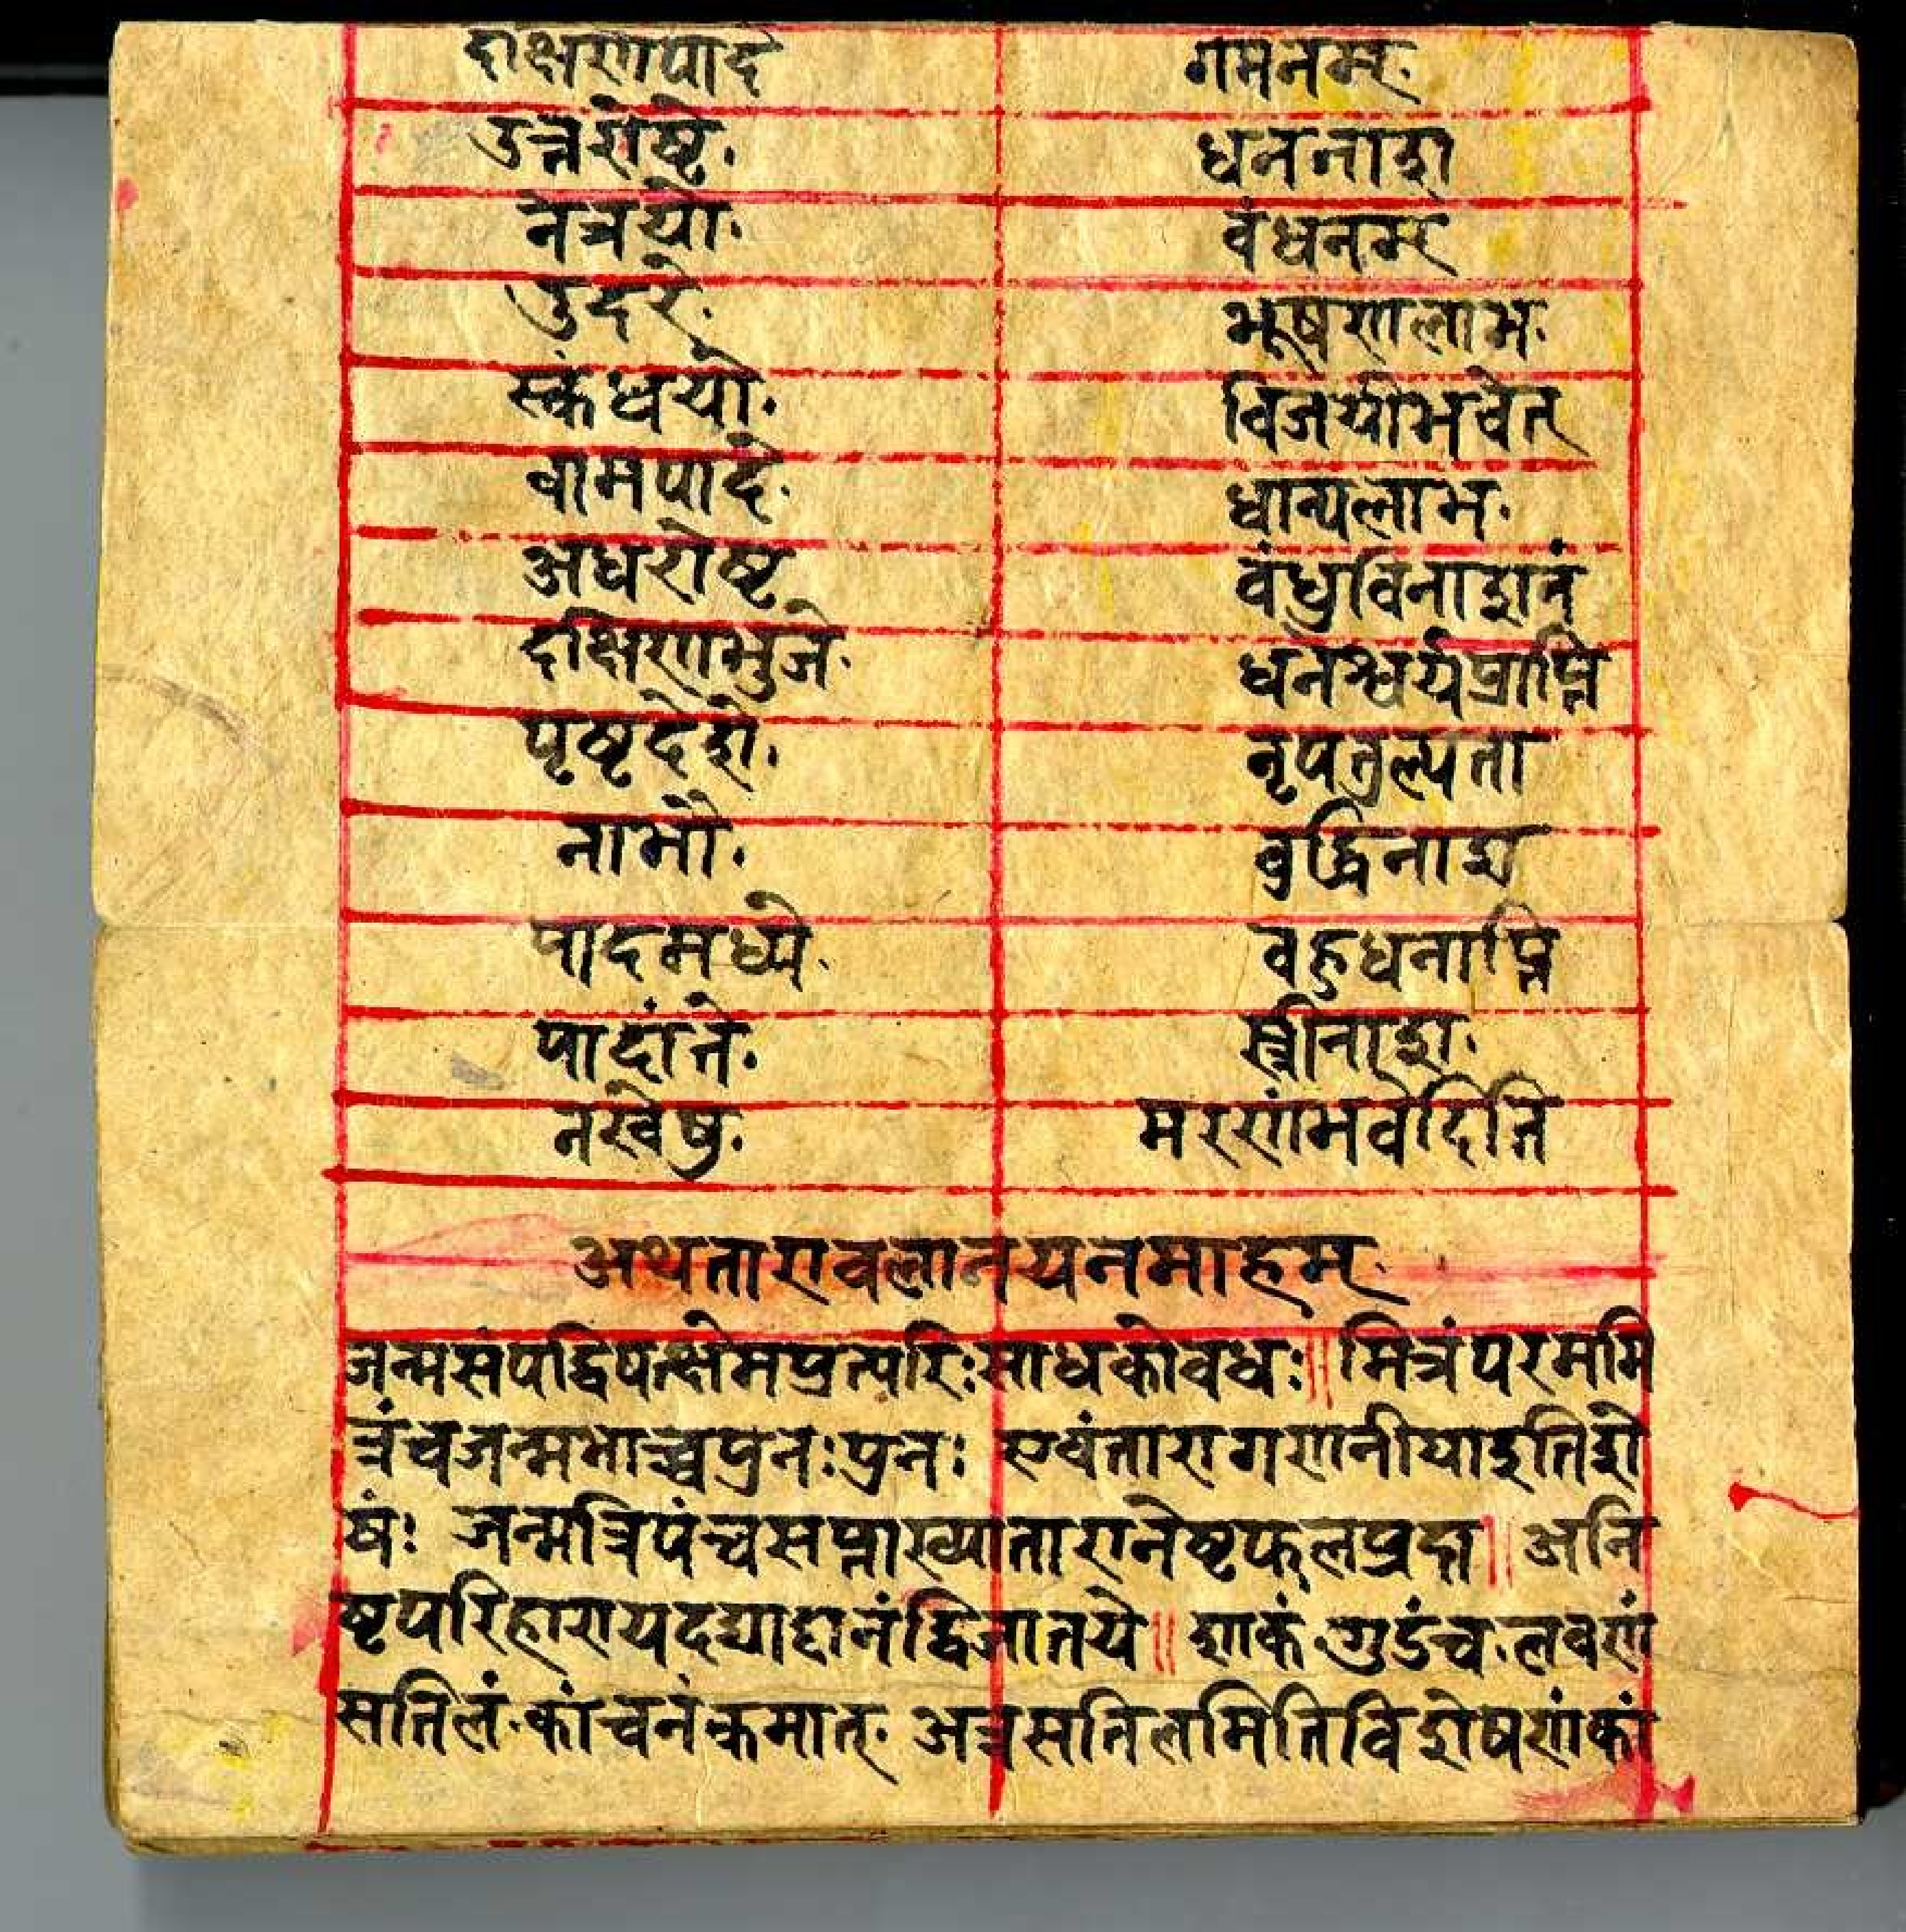 दक्षिणपादे गमनम्.
उत्तरोष्टे. धननाश
नेत्रयो. वंधनम्
उदरे. भूषणलाभ.
स्कंधयो. विजयीभवेत्
वामपादे. धान्यलाभ.
अधरोष्ट वंधुविनाशनं
दक्षिणभुजे. धनैश्वर्यप्राप्ति
पृष्टदेशे. नृपतुल्यता
नाभौ. वुद्धिनाश
पादमध्ये. वहुधनाप्ति
पादांते. स्त्रीनाश.
नखेषु. मरणंभवेदिति
अथतारावलानयनमाहम्.
जन्मसंपद्विपत्क्षेमप्रत्यरिःसाधकोवधः॥ मित्रंपरममि
त्रंचजन्मभाच्चपुनःपुनः एवंतारागणनीयाइतिशे
षंः जन्मत्रिपंच्चसप्ताख्यातारानेष्टफलप्रदा॥ अनि
ष्टपरिहारायदद्याद्दानंद्विजातये॥ शाकं.गुडंच.लवणं
सतिलं.कांच्चनंक्रमात्. अत्रसतिलमितिविशेषणंकां